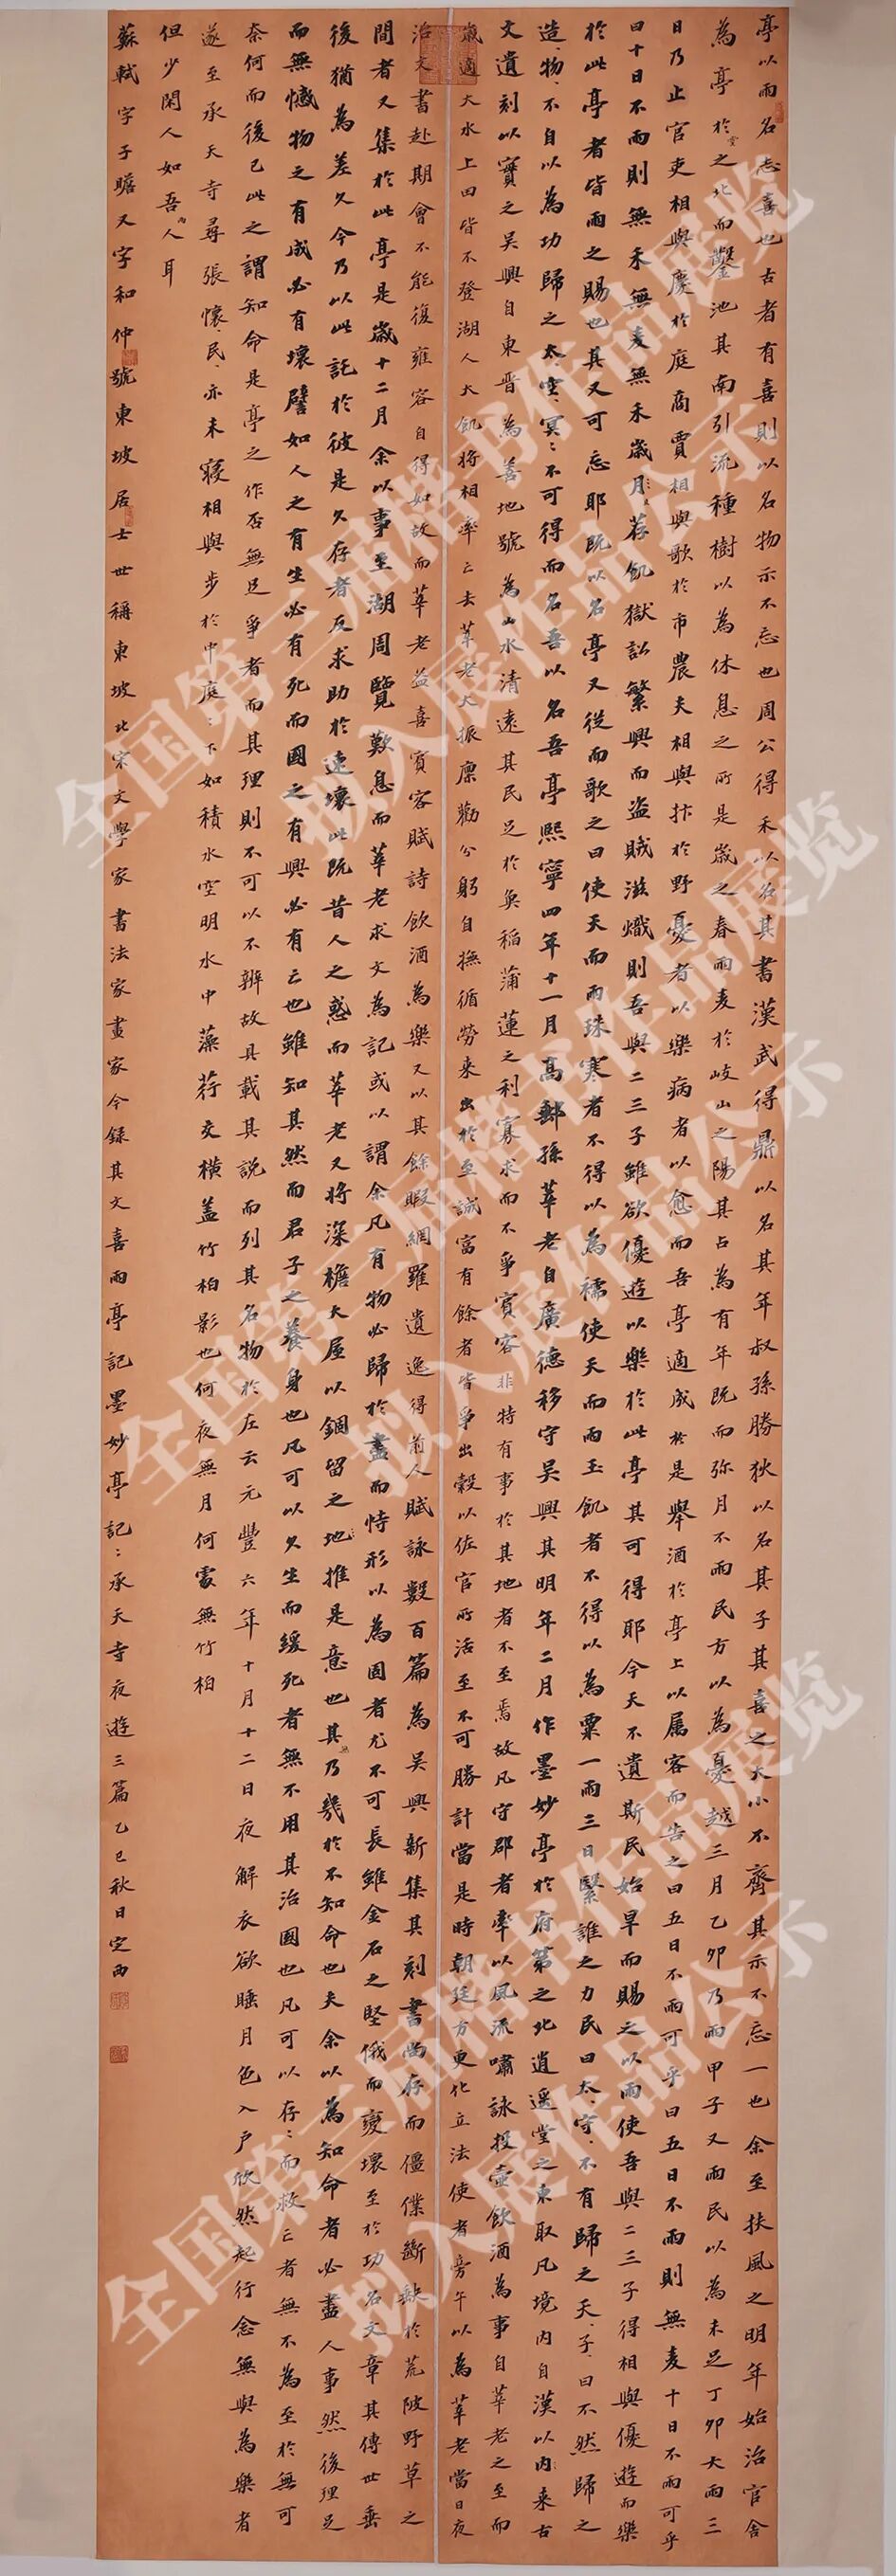 亭以雨名志喜也古者有喜則以名物示不忘也周公得禾以名其書漢武得鼎以名其年叔孫勝狄以名其子其喜之大小不齊其示不忘一也余至扶風之明年始治官舍
為亭於堂之北而鑿池其南引流種樹以為休息之所是歲之春雨麦於岐山之陽其占為有年既而弥月不雨民方以為憂越三月乙卯乃雨甲子又雨民以為未足丁卯大雨三
日乃止官吏相與慶於庭商賈相與歌於市農夫相與抃於野憂者以樂病者以愈而吾亭適成於是舉酒於亭上以属客而告之曰五日不雨可乎曰五日不雨則無麦十日不雨可乎
曰十日不雨則無禾無麦無禾歲月荐飢獄訟繁興而盗賊滋熾則吾與二三子雖欲優遊以樂於此亭其可得耶今天不遺斯民始旱而賜之以雨使吾與二三子得相與優遊而樂
於此亭者皆雨之賜也其又可忘耶既以名亭又從而歌之曰使天而雨珠寒者不得以為襦使天而雨玉飢者不得以為粟一雨三日繄誰之力民曰太、守、不有歸之天、子、曰不然歸之
造、物、不自以為功歸之太、空、冥〻不可得而名吾以名吾亭熙寧四年十一月高郵孫莘老自廣德移守吳興其明年二月作墨妙亭於府第之北逍遥堂之東取凡境内自漢以内来古
文遺刻以實之吳興自東晋為善地號為山水清遠其民足於魚稻蒲蓮之利寡求而不爭賓客非特有事於其地者不至焉故凡守郡者率以風流嘯詠投壺飲酒為事自莘老之至而
歲適大水上田皆不登湖人大飢将相率亡去莘老大振廪勸分躬自撫循勞来出於至誠富有餘者皆爭出穀以佐官所活至不可勝計當是時朝廷方更化立法使者旁午以為莘老當日夜
治文書赴期會不能復雍容自得如故而莘老益喜賓客賦詩飲酒為樂又以其餘暇網羅遺逸得前人賦詠數百篇為吳興新集其刻書尚存而僵僕斷缺於荒陂野草之
間者又集於此亭是歲十二月余以事至湖周覽歎息而莘老求文為記或以謂余凡有物必歸於盡而恃形以為固者尤不可長雖金石之堅俄而變壞至於功名文章其傳世垂
後猶為差久今乃以此託於彼是久存者反求助於速壞此既昔人之惑而莘老又将深檐大屋以錮留之地推是意也其乃幾於不知命也夫余以為知命者必盡人事然後理足
而無憾物之有成必有壞譬如人之有生必有死而國之有興必有亡也雖知其然而君子之養身也凡可以久生而緩死者無不用其治國也凡可以存〻而救亡者無不為至於無可
奈何而後已此之謂知命是亭之作否無足爭者而其理則不可以不辨故具載其説而列其名物於左云元豐六年十月十二日夜解衣欲睡月色入户欣然起行念無與為樂者
遂至承天寺尋張懷民、亦未寢相與步於中庭〻下如積水空明水中藻荇交橫盖竹柏影也何夜無月何處無竹柏
但少閑人如吾两人耳
蘇軾字子瞻又字和仲號東坡居士世稱東坡北宋文學家書法家畫家今録其文喜雨亭記墨妙亭記〻承天寺夜遊三篇乙巳秋日定西
全国第三届楷书作品展览
拟入展作品公示
全国第三届楷书作品展览
拟入展作品公示
全国第三届楷书作品展览
拟入展作品公示